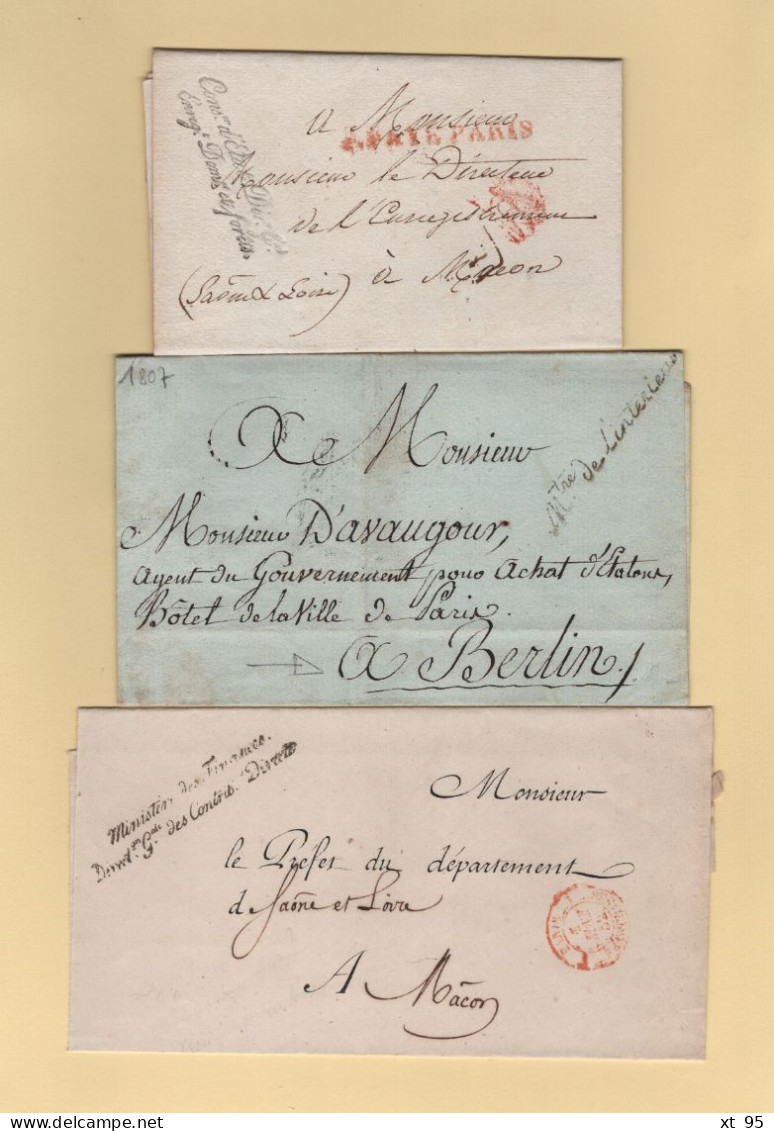 Cons.r d'Etat Dir. G.
Enreg.t Dom.s et forêts
a Monsieur
P.PAYÉ PARIS
Monsieur le Directeur
de l'Enregistrement
à Macon
(Saône & Loire)
1807
A Monsieur
M.tre de L'interieur
Monsieur D'avaugour,
Agent du Gouvernement pour Achat d'Etalons,
Hôtel de la Ville de Paris.
a Berlin
Ministère des Finances.
Direct.on G.ale des Contrib. Directes
Monsieur
le Préfet du département
de Saône et Loire
A Mâcon
xt 95